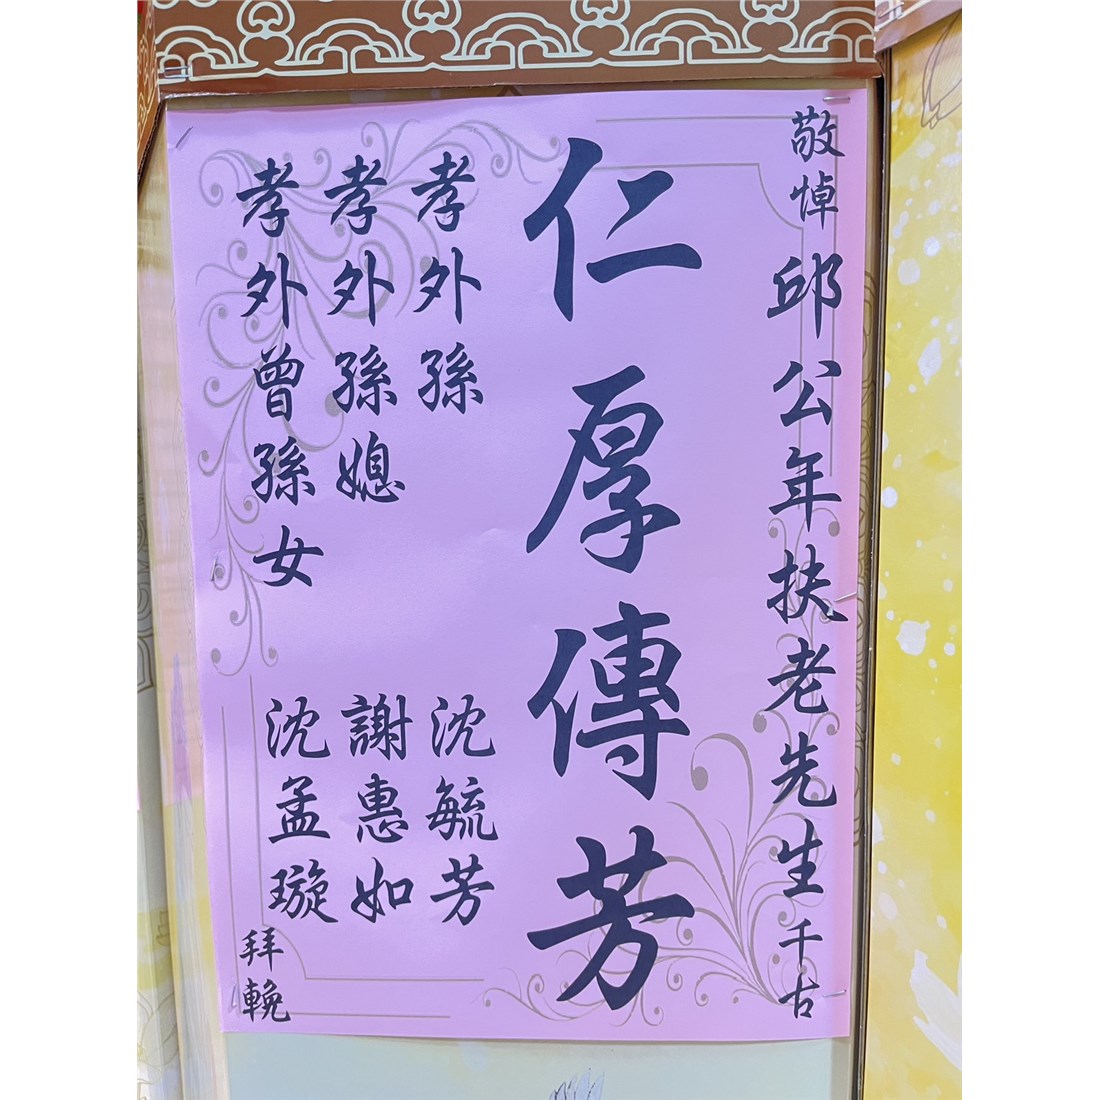 敬悼邱公年扶老先生千古
仁厚傳芳
孝外孫 沈毓芳
孝外孫媳 謝惠如
孝外曾孫女 沈孟璇
拜輓